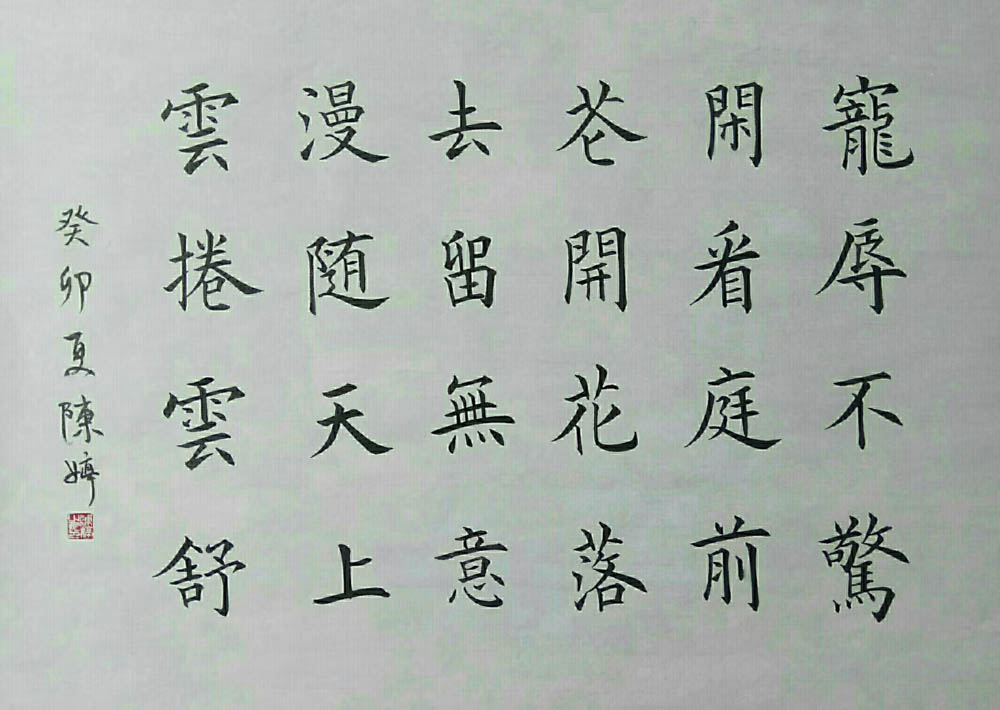 寵辱不驚
閑看庭前
花開花落
去留無意
漫随天上
雲捲雲舒
癸卯夏陳婷